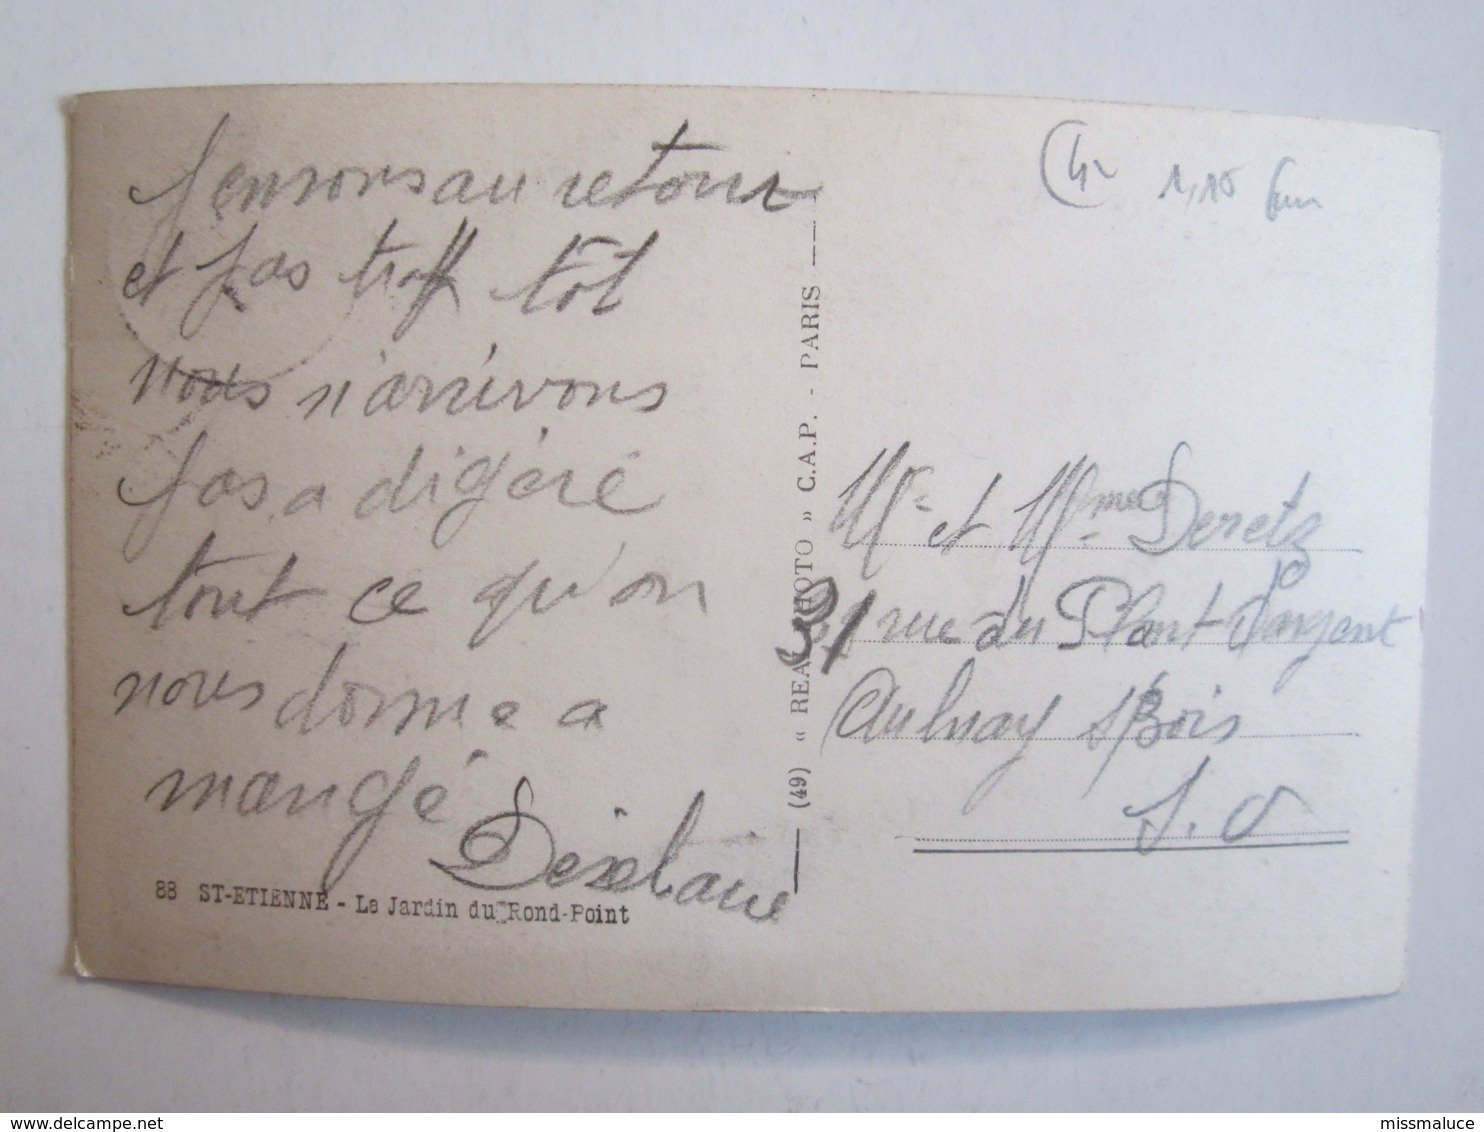 Pensons au retour
et pas trop tôt
nous n'arrivons
pas a digéré
tout ce qu'on
nous donne a
mangé
88 ST-ETIENNE - Le Jardin du Rond-Point
(49) « REAL-PHOTO » C.A.P. - PARIS
42 1,10
Mr et Mme Deretz
31 rue du Plant d'argent
Aulnay s/Bois
S.O
delcampe.net
missmaluce